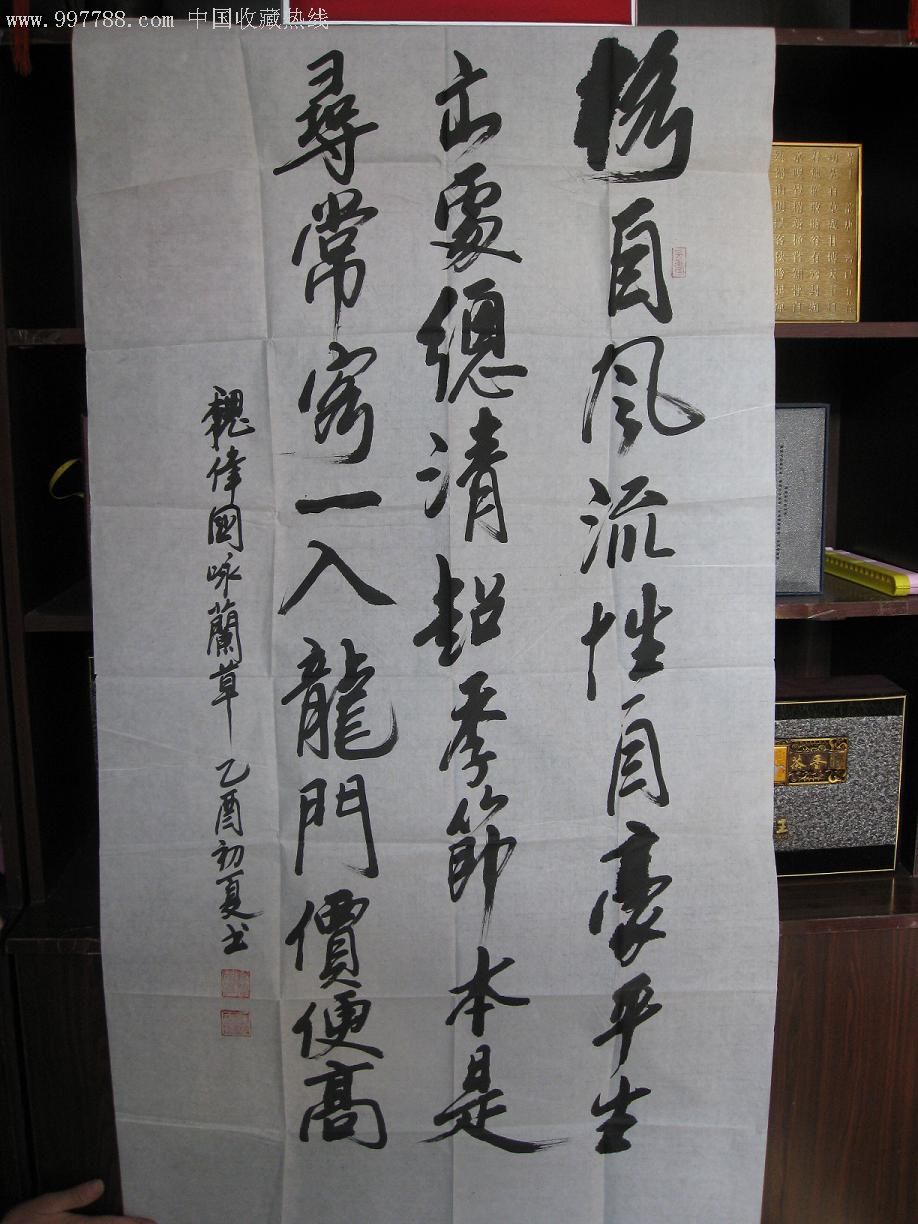 www.997788.com 中国收藏热线
自风流性自豪平生
立處總清超季節本是
尋常客一入龍門價便高
魏偉國咏蘭草 乙酉初夏书